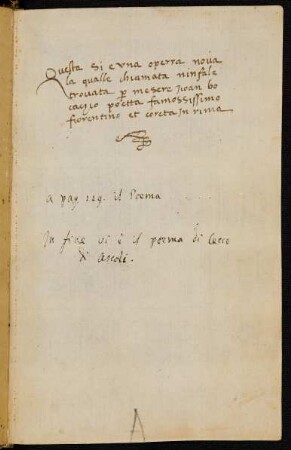 Questa si e una operra noua
la qualle chiamata ninfale
trouata p mesere Joan bo
cacjo poetta famossissimo
fiorentino et coreta in rima
a pag 129. il Poema
In fine vi è il poema di Cecco
di Ascoli.